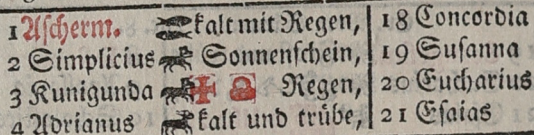 1 Aſcherm. kalt mit Regen, 18 Concordia
2 Simplicius Sonnenſchein, 19 Suſanna
3 Kunigunda Regen, 20 Eucharius
4 Adrianus kalt und trübe, 21 Eſaias